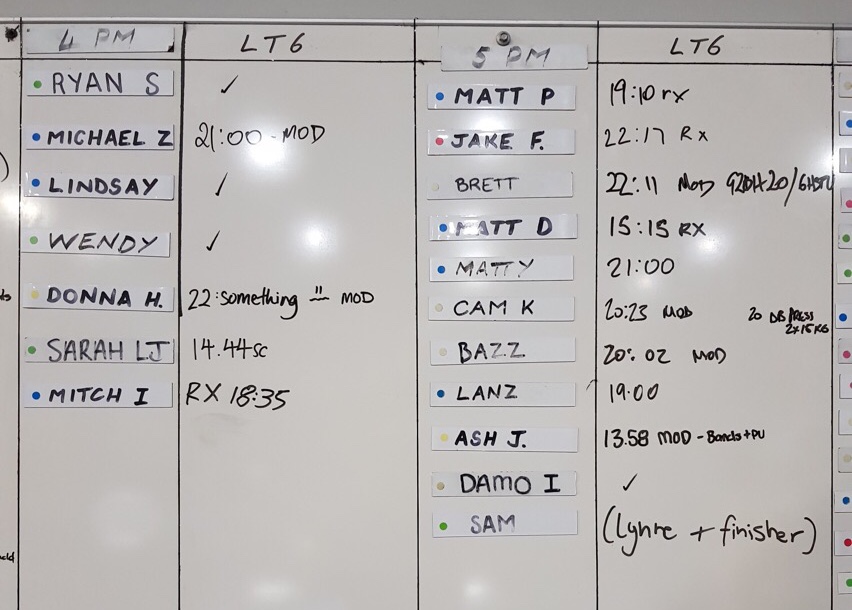 4 PM LT6
RYAN S ✓
MICHAEL Z 21:00 - MOD
LINDSAY ✓
WENDY ✓
DONNA H. 22:something MOD
SARAH LJ 14.44sc
MITCH I RX 18:35
5 PM LT6
MATT P 19:10 rx
JAKE F. 22:17 Rx
BRETT 22:11 MOD
MATT D 15:15 RX
MATTY 21:00
CAM K 20:23 MOD 20 DB
2x15KG
BAZZ 20:02 MOD
LANZ 19:00
ASH J. 13.58 MOD - Bands+PU
DAMO I ✓
SAM ( + finisher)